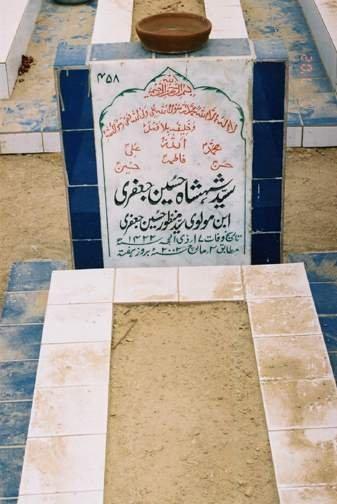 ۴۵۸
بسم اللہ الرحمن الرحیم
لا الہ الا اللہ محمد رسول اللہ علی ولی اللہ وصی رسول اللہ
وخلیفتہ بلا فصل
اللہ
محمد علی
فاطمہ
حسن حسین
سید شہنشاہ حسین جعفری
ابن مولوی سید منظور حسین جعفری
تاریخ وفات ۱۷ ذی الحجہ ۱۴۲۲ھ
مطابق ۲ مارچ ۲۰۰۲ء بروز ہفتہ